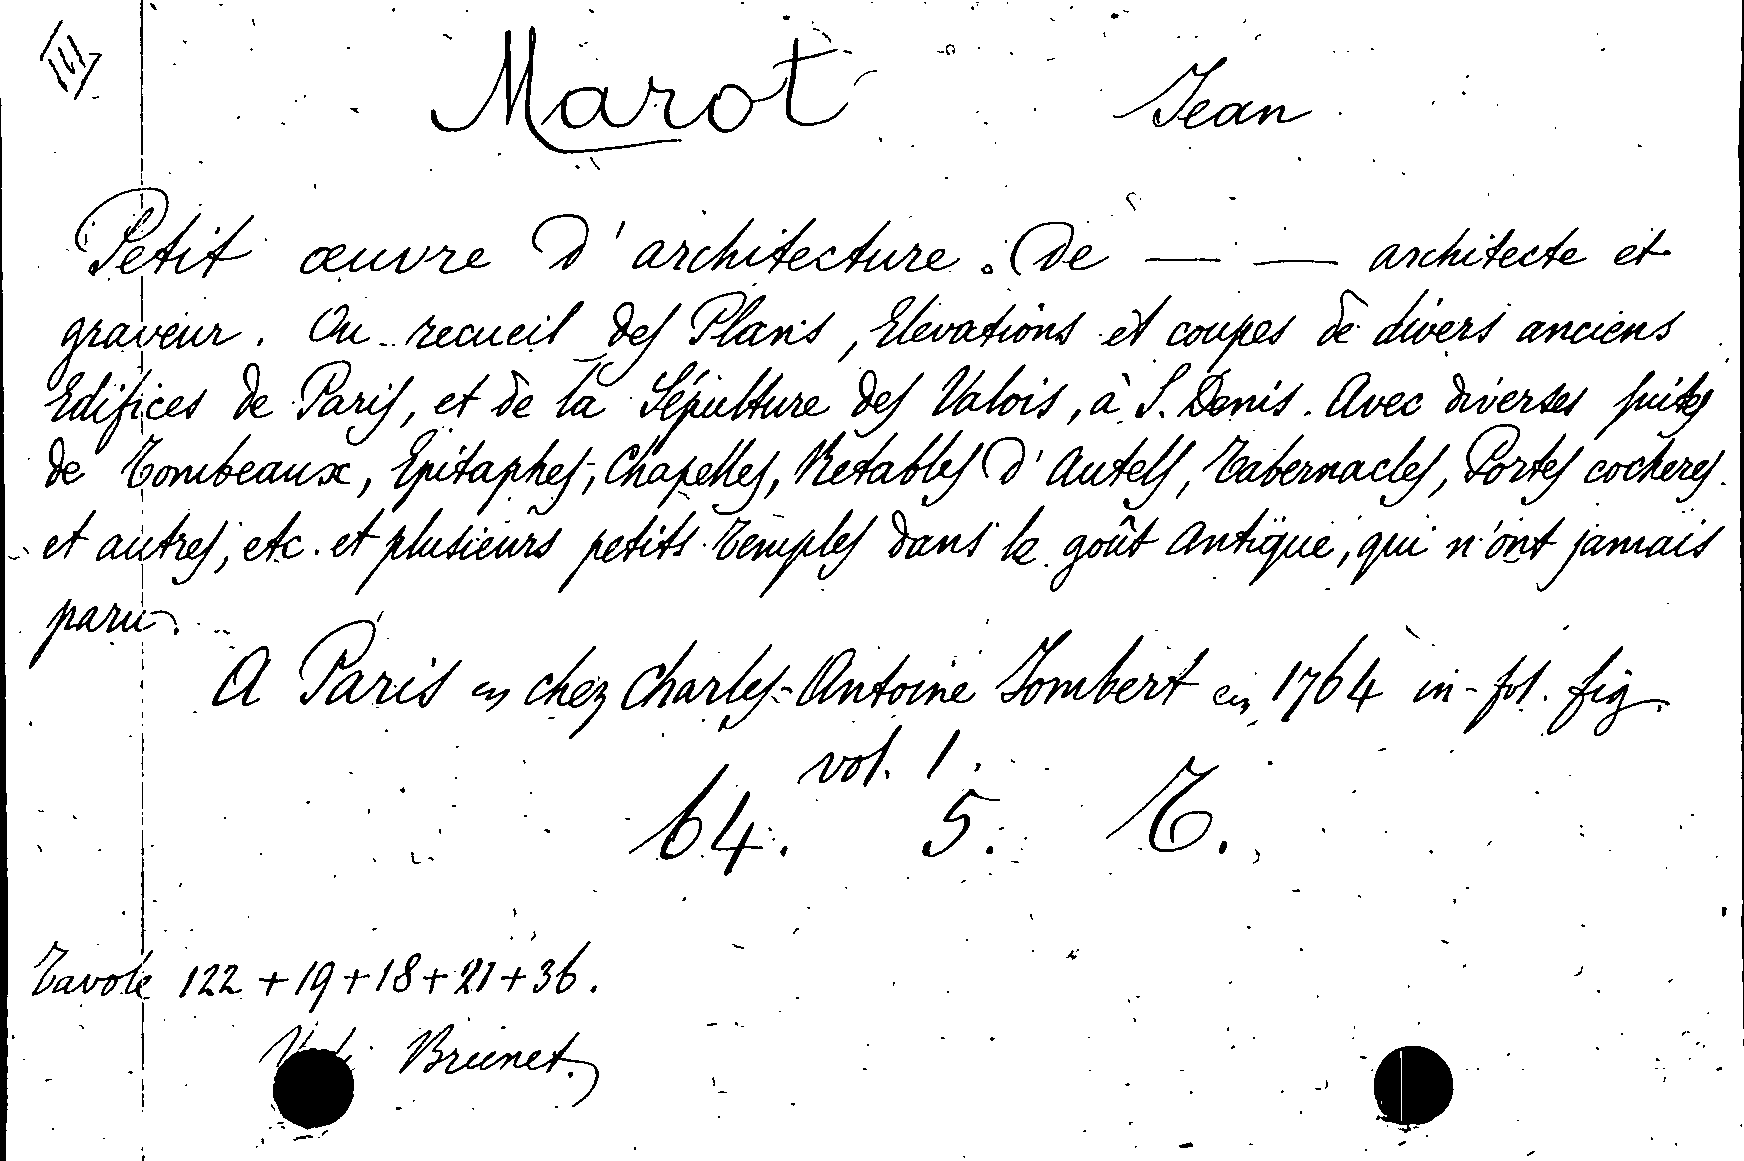 Marot Jean
Petit œuvre d'architecture. De — — architecte et
graveur. Ou recueil des Plans, Elevations et coupes de divers anciens
Edifices de Paris, et de la Sépulture des Valois, à S. Denis. Avec diverses suites
de Tombeaux, Epitaphes, Chapelles, Retables d'Autels, Tabernacles, Portes cocheres
et autres, etc. et plusieurs petits Temples dans le goût Antique, qui n'ont jamais
paru.
A Paris en chez Charles-Antoine Jombert en 1764 in-fol. fig.
vol. 1.
64. 5. T.
Tavole 122+19+18+21+36.
Brunet.